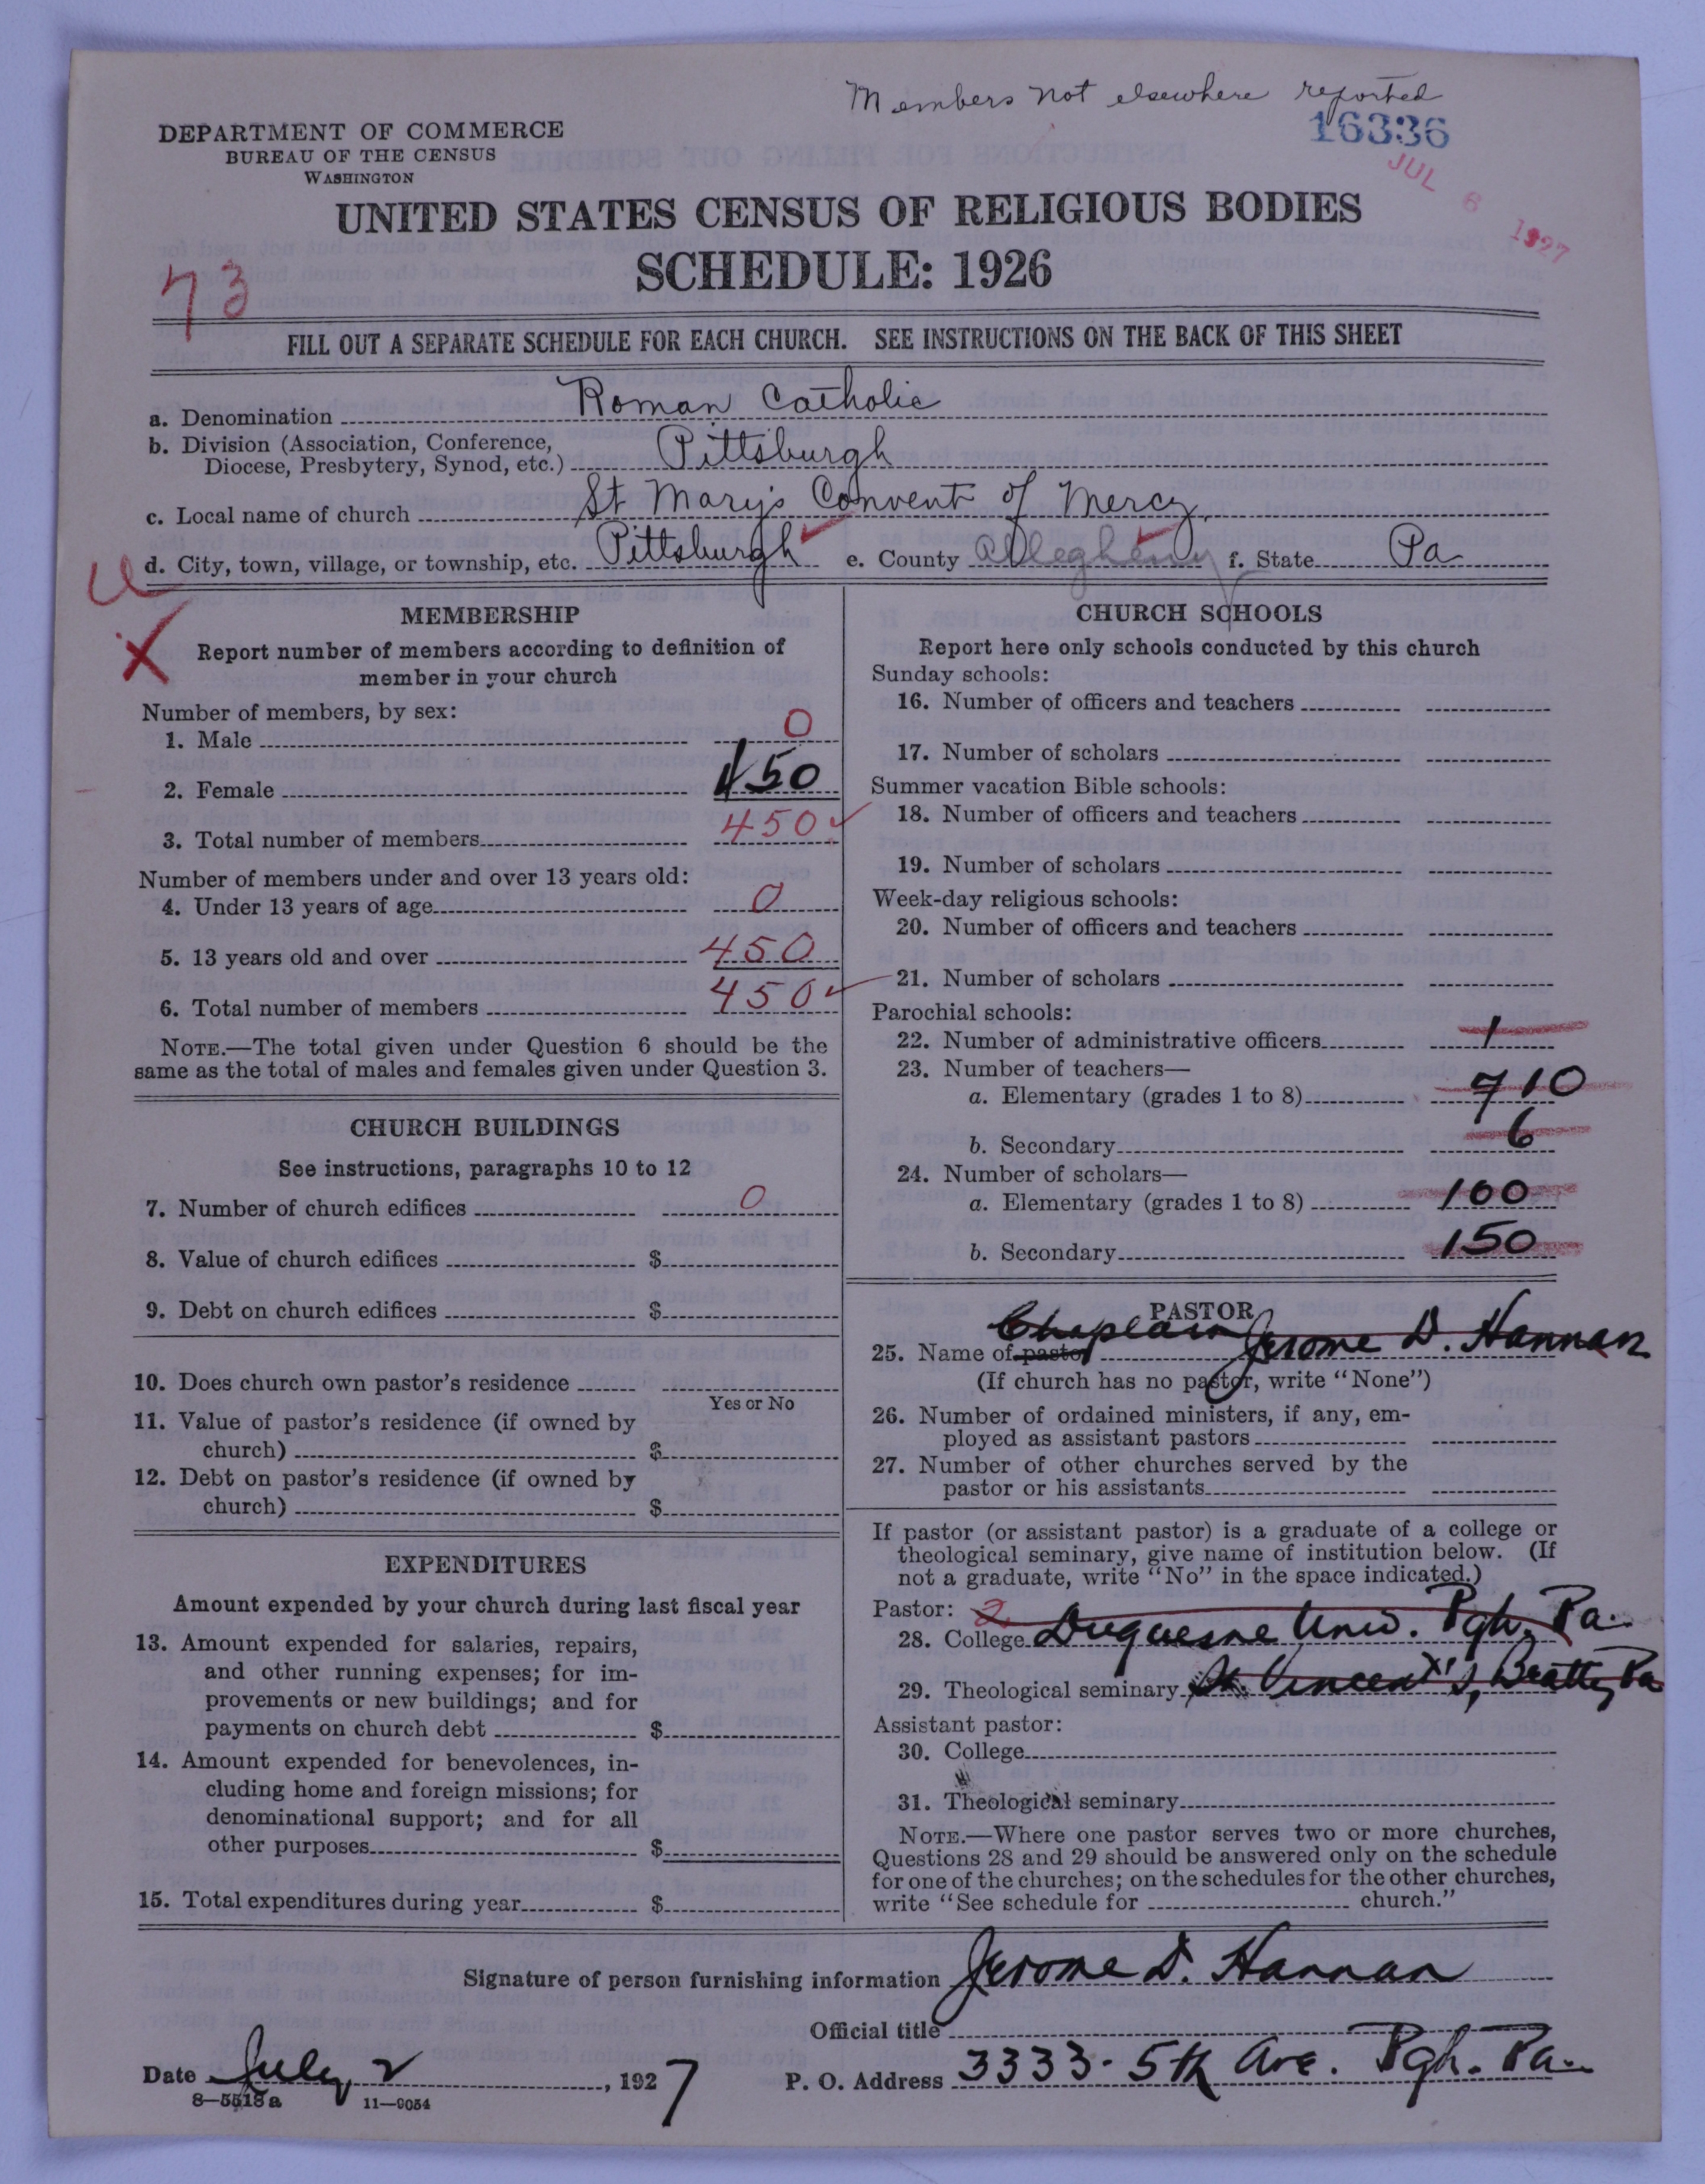 Members not elsewhere reported
DEPARTMENT OF COMMERCE
BUREAU OF THE CENSUS
WASHINGTON
16336
JUL 6 1927
UNITED STATES CENSUS OF RELIGIOUS BODIES
SCHEDULE: 1926
73
FILL OUT A SEPARATE SCHEDULE FOR EACH CHURCH. SEE INSTRUCTIONS ON THE BACK OF THIS SHEET
a. Denomination Roman Catholic
b. Division (Association, Conference,
Diocese, Presbytery, Synod, etc.) Pittsburgh
c. Local name of church St Mary's Convent of Mercy
d. City, town, village, or township, etc. Pittsburgh e. County Allegheny f. State Pa
MEMBERSHIP
Report number of members according to definition of
member in your church
Number of members, by sex:
1. Male 0
2. Female 450
3. Total number of members 450
Number of members under and over 13 years old:
4. Under 13 years of age 0
5. 13 years old and over 450
6. Total number of members 450
NOTE.—The total given under Question 6 should be the
same as the total of males and females given under Question 3.
CHURCH BUILDINGS
See instructions, paragraphs 10 to 12
7. Number of church edifices 0
8. Value of church edifices $
9. Debt on church edifices $
10. Does church own pastor's residence
Yes or No
11. Value of pastor's residence (if owned by
church) $
12. Debt on pastor's residence (if owned by
church) $
EXPENDITURES
Amount expended by your church during last fiscal year
13. Amount expended for salaries, repairs,
and other running expenses; for im-
provements or new buildings; and for
payments on church debt $
14. Amount expended for benevolences, in-
cluding home and foreign missions; for
denominational support; and for all
other purposes $
15. Total expenditures during year $
CHURCH SCHOOLS
Report here only schools conducted by this church
Sunday schools:
16. Number of officers and teachers
17. Number of scholars
Summer vacation Bible schools:
18. Number of officers and teachers
19. Number of scholars
Week-day religious schools:
20. Number of officers and teachers
21. Number of scholars
Parochial schools:
22. Number of administrative officers 1
23. Number of teachers—
a. Elementary (grades 1 to 8) 7 10
b. Secondary 6
24. Number of scholars—
a. Elementary (grades 1 to 8) 100
b. Secondary 150
PASTOR
Chaplain
25. Name of pastor Jerome D. Hannan
(If church has no pastor, write "None")
26. Number of ordained ministers, if any, em-
ployed as assistant pastors
27. Number of other churches served by the
pastor or his assistants
If pastor (or assistant pastor) is a graduate of a college or
theological seminary, give name of institution below. (If
not a graduate, write "No" in the space indicated.)
Pastor: 2
28. College Duquesne Univ. Pgh. Pa.
29. Theological seminary St. Vincent's, Beatty Pa
Assistant pastor:
30. College
31. Theological seminary
NOTE.—Where one pastor serves two or more churches,
Questions 28 and 29 should be answered only on the schedule
for one of the churches; on the schedules for the other churches,
write "See schedule for church."
Signature of person furnishing information Jerome D. Hannan
Official title
Date July 2, 1927 P. O. Address 3333-5th Ave. Pgh. Pa.
8—5518a 11—9054